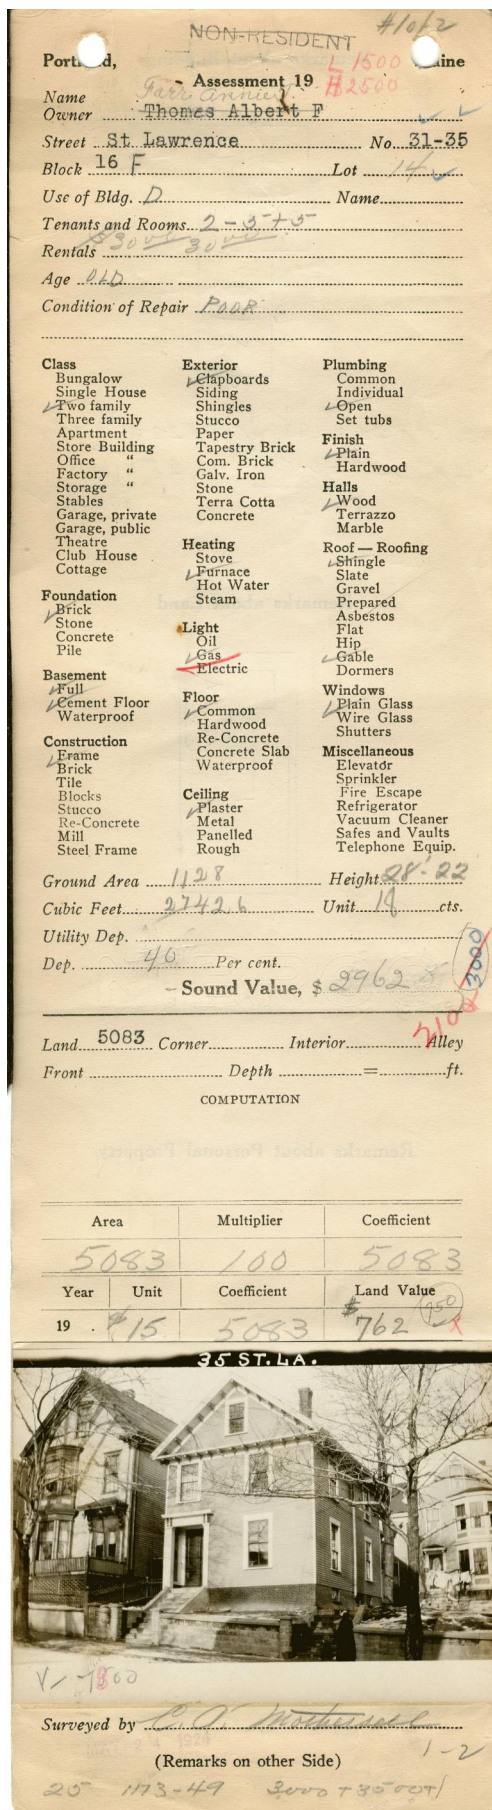 #1 of 2
NON-RESIDENT
Portland, Maine
L 1500
Assessment 19
H 2500
Name Farr Annie
Owner Thomas Albert F
Street St Lawrence No. 31-35
Block 16 F Lot 14
Use of Bldg. D Name
Tenants and Rooms 2-5+5
Rentals $30.00 30.00
Age OLD
Condition of Repair POOR
Class
Bungalow
Single House
Two family
Three family
Apartment
Store Building
Office "
Factory "
Storage "
Stables
Garage, private
Garage, public
Theatre
Club House
Cottage
Foundation
Brick
Stone
Concrete
Pile
Basement
Full
Cement Floor
Waterproof
Construction
Frame
Brick
Tile
Blocks
Stucco
Re-Concrete
Mill
Steel Frame
Exterior
Clapboards
Siding
Shingles
Stucco
Paper
Tapestry Brick
Com. Brick
Galv. Iron
Stone
Terra Cotta
Concrete
Heating
Stove
Furnace
Hot Water
Steam
Light
Oil
Gas
Electric
Floor
Common
Hardwood
Re-Concrete
Concrete Slab
Waterproof
Ceiling
Plaster
Metal
Panelled
Rough
Plumbing
Common
Individual
Open
Set tubs
Finish
Plain
Hardwood
Halls
Wood
Terrazzo
Marble
Roof — Roofing
Shingle
Slate
Gravel
Prepared
Asbestos
Flat
Hip
Gable
Dormers
Windows
Plain Glass
Wire Glass
Shutters
Miscellaneous
Elevator
Sprinkler
Fire Escape
Refrigerator
Vacuum Cleaner
Safes and Vaults
Telephone Equip.
Ground Area 1128 Height 28-22
Cubic Feet 27426 Unit 18 cts.
Utility Dep.
Dep. 40 Per cent.
3000
Sound Value, $ 2962
2100
Land 5083 Corner Interior Alley
Front Depth = ft.
COMPUTATION
Remarks about Personal Property
Area Multiplier Coefficient
5083 100 5083
Year Unit Coefficient Land Value
19 $15 5083 $762 750
35 ST. LA.
Surveyed by
(Remarks on other Side)
1-2
25 1173-49